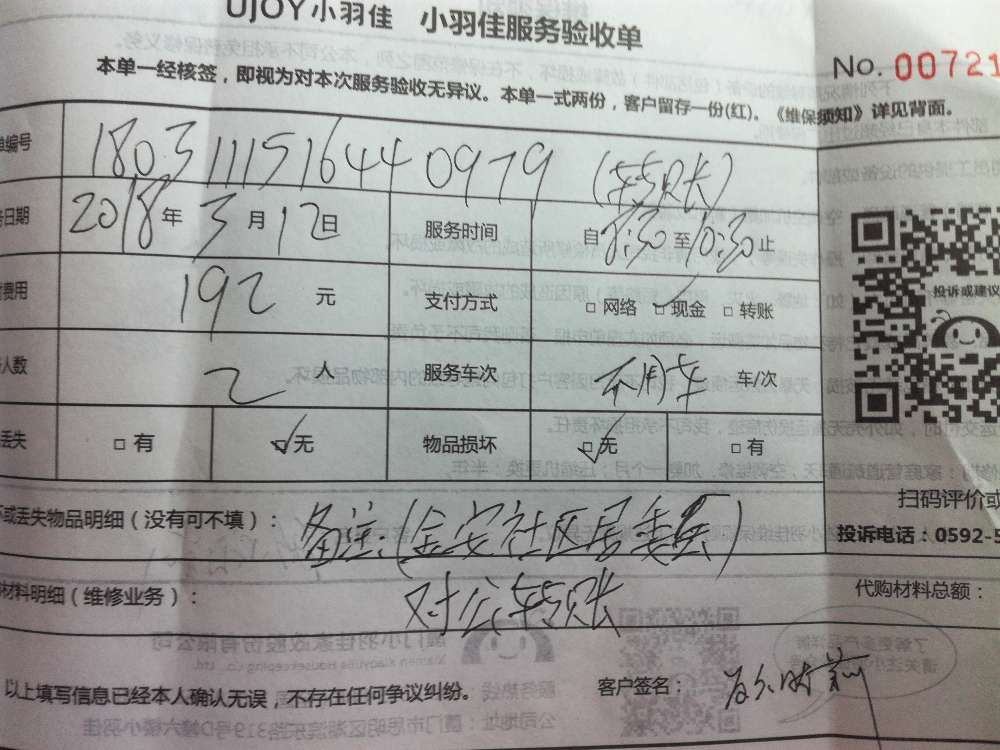 UJOY小羽佳 小羽佳服务验收单
No. 00721
本单一经核签，即视为对本次服务验收无异议。本单一式两份，客户留存一份(红)。《维保须知》详见背面。
单编号 180311151644 0979 (转账)
务日期 2018年3月12日 服务时间 自8:30至10:30止
费用 192 元 支付方式 □ 网络 □ 现金 □ 转账
人数 2 人 服务车次 不用车 车/次
丢失 □ 有 ☑ 无 物品损坏 ☑ 无 □ 有
投诉或建议
坏或丢失物品明细（没有可不填）： 备注(金安社区居委会)
扫码评价或
投诉电话：0592-5
材料明细（维修业务）： 对公转账
代购材料总额：
以上填写信息已经本人确认无误，不存在任何争议纠纷。 客户签名：